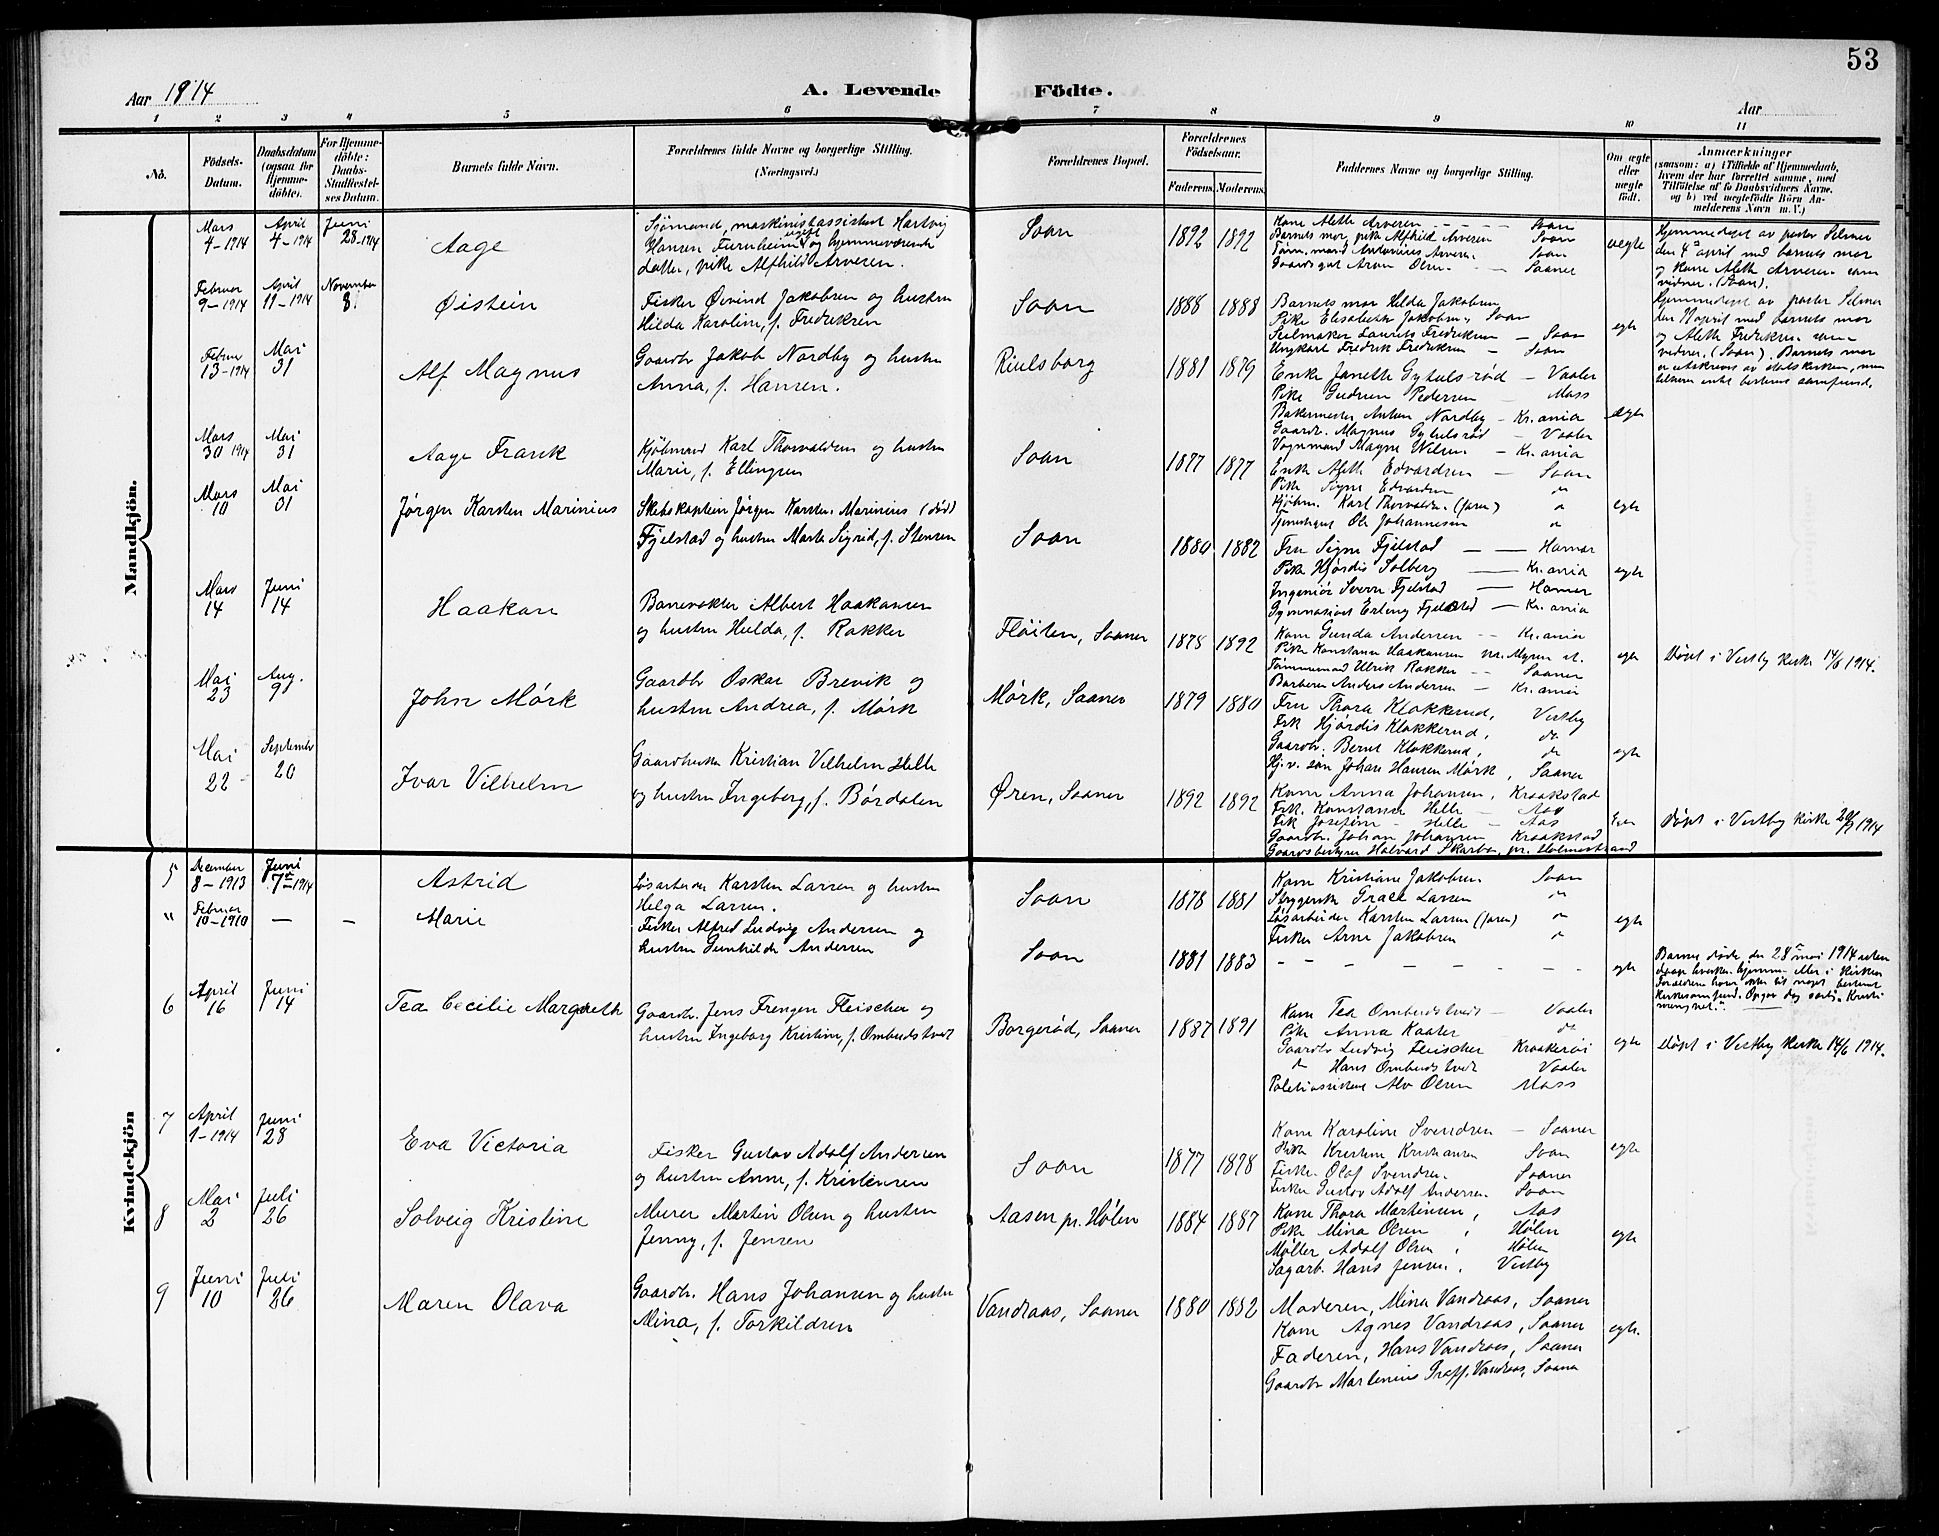 53
Aar 1914
A. Levende Födte.
Aar
1 2 3 4 5 6 7 8 9 10 11
No.
Födsels-Datum.
Daabsdatum (ogsaa for Hjemmedöbte).
For Hjemmedöbte: Daabs-Stadfæstelses Datum.
Barnets fulde Navn.
Forældrenes fulde Navne og borgerlige Stilling. (Næringsvei.)
Forældrenes Bopæl.
Forældrenes Födselsaar.
Faderens. Moderens.
Faddernes Navne og borgerlige Stilling.
Om ægte eller uægte födt.
Anmærkninger
(saasom: a) i Tilfælde af Hjemmedaab, hvem der har forrettet samme, med Tilföielse af to Daabsvidners Navne, og b) ved uægtefödte Börn Anmelderens Navn m. V.)
Mandkjön.
Mars 4-1914
April 4-1914
Juni 28-1914
Aage
Sjømand, maskinistassistent Hartvig
Hansen Furnheim ugift og hjemmeværende
datter, pike Alfhild Arvesen.
Soon
1892 1892
Kone Aleth Arvesen - Soon
Barnets mor, pike Alfhild Arvesen Soon
Tømmermand Andreas Arvesen Soon
Gaardsgut Arvin Olsen - Saaner
uegte
Hjemmedøpt av pastor Selmer
den 4de april med barnets mor
og kone Aleth Arvesen som
vidner. (Soon).
Februar 9-1914
April 11-1914
November 8.
Øistein
Fisker Øivind Jakobsen og hustru
Hilda Karoline, f. Fredriksen
Soon
1888 1888
Barnets mor Hilda Jakobsen
Pike Elisabeth Jakobsen, Soon
Seilmaker Laurits Fredriksen - Soon
Ungkarl Fredrik Fredriksen - Soon
egte
Hjemmedøpt av pastor Selmer
den 11 april med barnets mor
og Aleth Fredriksen som
vidner. (Soon). Barnets mor
er utskrevet av statskirken, men
tilhører intet bestemt samfund.
Februar 13-1914
Mai 31
Alf Magnus
Gaardbr. Jakob Nordby og hustru
Anna, f. Hansen.
Riulsborg
1881 1879
Enke Janette Gyhelsrød - Vaaler
Pike Gudrun Pedersen - Moss
Bakermester Anton Nordby - Kr.ania
Gaardbr. Magnus Gyhelsrød - Vaaler
egte
Mars 30 1914
Mai 31
Aage Frank
Kjøbmand Karl Thorvaldsen og hustru
Marie, f. Ellingsen
Soon
1877 1877
Vognmand Magne Nilsen - Kr.ania
Enke Aleth Edvardsen - Soon
Pike Signe Edvardsen do
Kjøbm. Karl Thorvaldsen (faren) "
Tjenestegut Ole Johannesen "
egte
Mars 10
Mai 31
Jørgen Karsten Marinius
Skibskaptein Jørgen Karsten Marinius (død)
Fjelstad og hustru Marta Sigrid, f. Stensen
Soon
1880 1882
Fru Signe Fjelstad - Hamar
Pike Hjørdis Solberg - Kr.ania
Ingeniør Sverre Fjelstad - Hamar
Gymnasiast Erling Fjelstad - Kr.ania
egte
Mars 14
Juni 14
Haakon
Banevokter Albert Haakonsen
og hustru Hulda, f. Rakker
Fløiten, Saaner
1878 1892
Kone Gunda Andersen - Kr.ania
Pike Konstanse Haakonsen pr. Mysen st.
Tømmermand Ulrik Rakker - Saaner
Barberer Anders Andersen - Kr.ania
egte
Døpt i Vestby kirke 14/6 1914.
Mai 23
Aug. 9
John Mørk
Gaardbr Oskar Brevik og
hustru Andrea, f. Mørk
Mørk, Saaner
1879 1880
Fru Thora Klokkerud, Vestby
Frk Hjørdis Klokkerud, do
Gaardbr. Bernt Klokkerud, do
Hj.v. søn Johan Hansen Mørk, Saaner
egte
Mai 22
September 20
Ivar Vilhelm
Gaardbruker Kristian Vilhelm Helle
og hustru Ingeborg, f. Børdalen
Øren, Saaner
1892 1892
Kone Anna Johansen, Kraakstad
Frk. Konstanse Helle - Aas
Frk Josefine - Helle - Aas
Gaardbr. Johan Johansen Kraakstad
Gaardsbestyrer Halvard Skarbø, pr. Holmestrand
Døpt i Vestby kirke 20/9 1914
Kvindekjön
5
December 8-1913
Juni 7de 1914
Astrid
Løsarbeider Karsten Larsen og hustru
Helga Larsen.
Soon
1878 1881
Kone Kristiane Jakobsen Soon
Strygerske Grace Larsen "
Løsarbeider Karsten Larsen (faren) "
Fisker Arne Jakobsen "
egte
"
Februar 10-1910
- -
Marie
Fisker Alfred Ludvig Andersen og
hustru Gunhilda Andersen
Soon
1881 1883
- - - - - - -
egte
Barnet døde den 28de mai 1914 uten
daap hverken hjemme eller i kirken
Forældrene hører ikke til noget bestemt
kirkesamfund. Opgav dog sorti "Kristi
menighet".
6
April 16
Juni 14
Tea Cecilie Margreth
Gaardbr. Jens Frengen Fleischer og
hustru Ingeborg Kristine, f. Ombudstvedt
Borgerød, Saaner
1887 1891
Kone Tea Ombudstvedt - Vaaler
Pike Anna Kaater do
Gaardbr Ludvig Fleischer Kraakerøi
" Hans Ombudstvedt Vaaler
Politiassistent Alv Olsen Moss
egte
Døpt i Vestby kirke 14/6 1914.
7
April 1-1914
Juni 28
Eva Victoria
Fisker Gustav Adolf Andersen
og hustru Anna, f. Kristensen
Soon
1877 1878
Kone Karoline Svendsen - Saaner
Pike Kristine Kristiansen Soon
Fisker Olaf Svendsen Saaner
Fisker Gustav Adolf Andersen Soon
egte
8
Mai 2
Juli 26
Solveig Kristine
Murer Martin Olsen og hustru
Jenny, f. Jensen
Aasen pr. Hølen
1884 1887
Kone Thora Martinsen, Aas
Pike Mina Olsen, Hølen
Møller Adolf Olsen, Hølen
Sagarb. Hans Jensen, Vestby
egte
9
Juni 10
Juli 26
Maren Olava
Gaardbr. Hans Johansen og hustru
Mina, f. Torkildsen
Vandraas, Saaner
1880 1882
Moderen, Mina Vandraas, Saaner
Kone Agnes Vandraas, Saaner
Faderen, Hans Vandraas, Saaner
Gaardbr Martinius Graff Vandraas, Saaner
egte.